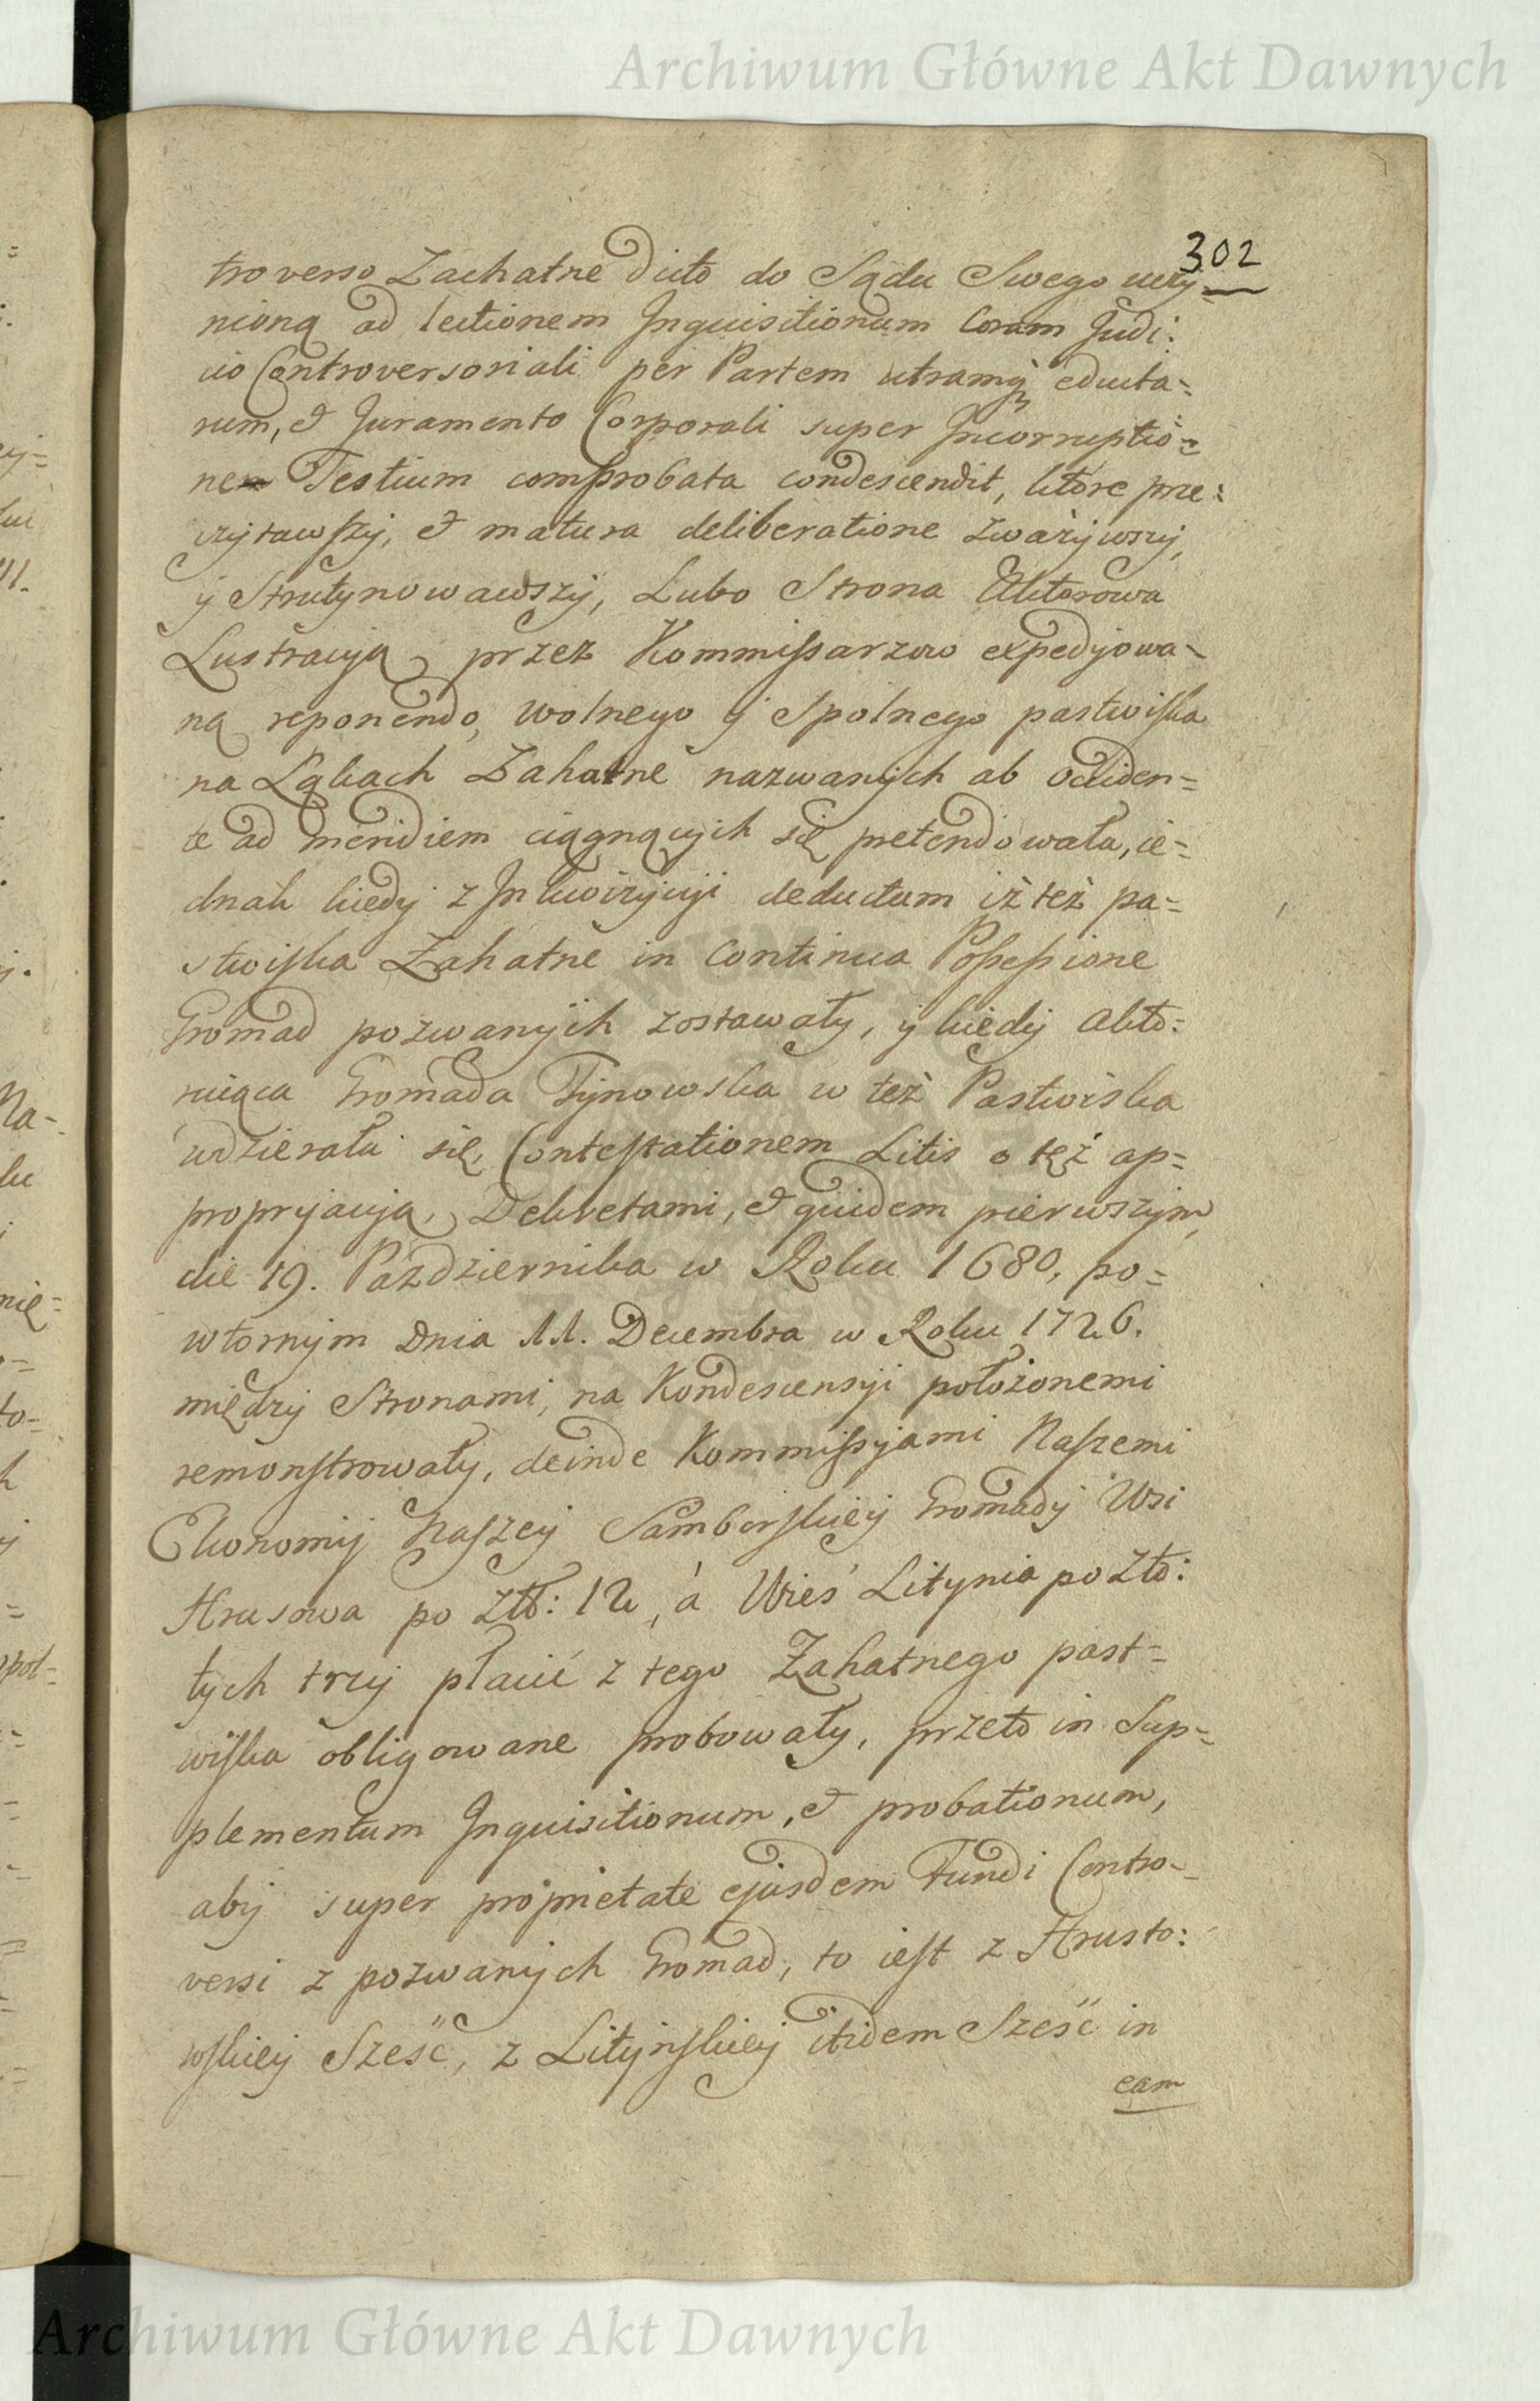 Archiwum Główne Akt Dawnych
302
troverso Zachatne dicto do Sądu Swego uczy=
nioną ad lectionem Inquisitionum Coram Judi:
cio Controversoriali per Partem utramq; educta=
rum, et Juramento Corporali super Incorruptio=
ne Testium comprobata condescendit, które prze:
czytawszy, et matura deliberatione zważywszy,
y Strutynowawszy, Lubo Strona Aktorowa
Lustracyą przez Kommissarzow expedyjowa=
ną reponendo, wolnego y Spolnego pastwiska
na Łąkach Zahatne nazwanych ab occiden=
te ad meridiem ciągnących się pretendowała, ie=
dnak kiedy z Inkwizycyi deductum iż też pa=
stwiska Zahatne in Continua Possessione
Gromad pozwanych zostawały, y kiedy Akto:
rująca Gromada Tynowska w też Pastwiska
wdzierała się, Contestationem Litis o tęż ap=
propryacyą, Dekretami, et quidem pierwszym,
die 19. Pazdziernika w Roku 1680, po=
wtornym Dnia 11. Decembra w Roku 1726.
między Stronami, na Kondescensyi położonemi
remonstrowały, deinde Kommissyjami Naszemi
Ekonomij Naszey Samborskiey Gromady Wsi
Hrusowa po Złt: 12, á Wieś Litynia po Zło:
tych trzy płacić z tego Zahatnego past=
wiska obligowane probowały, przeto in Sup=
plementum Inquisitionum, et probationum,
aby super proprietate ejusdem Fundi Contro=
versi z pozwanych Gromad, to iest z Hrusto:
wskiey Sześć, z Lityńskiey itidem Sześć in
eam
Archiwum Główne Akt Dawnych